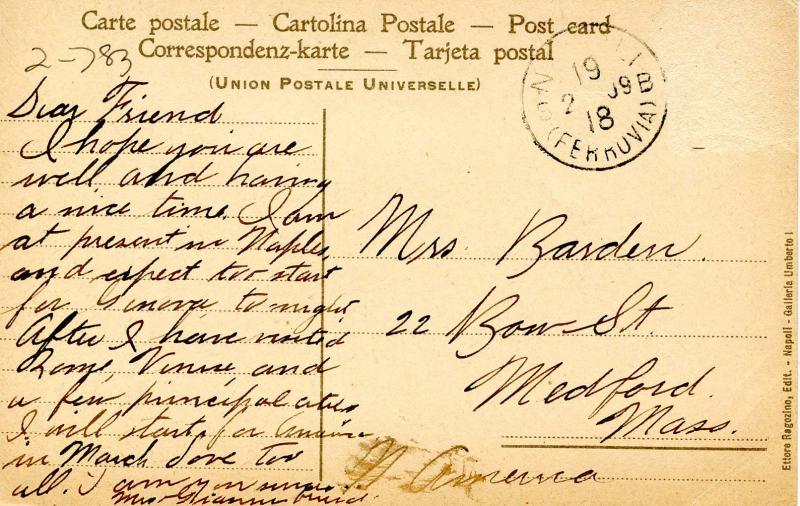 Carte postale — Cartolina Postale — Post card
Correspondenz-karte — Tarjeta postal
(UNION POSTALE UNIVERSELLE)
2-783
Dear Friend
I hope you are
well and having
a nice time. I am
at present in Naples,
and expect too start
for Genova to night
After I have visited
Rome, Venice, and
a few principal cities
I will start for
in March love too
all. I am
19
2 09
18
(FERROVIA)
Mrs. Barden.
22 Bow St.
Medford.
Mass.
N America
Ettore Ragozino, Edit. - Napoli - Galleria Umberto I